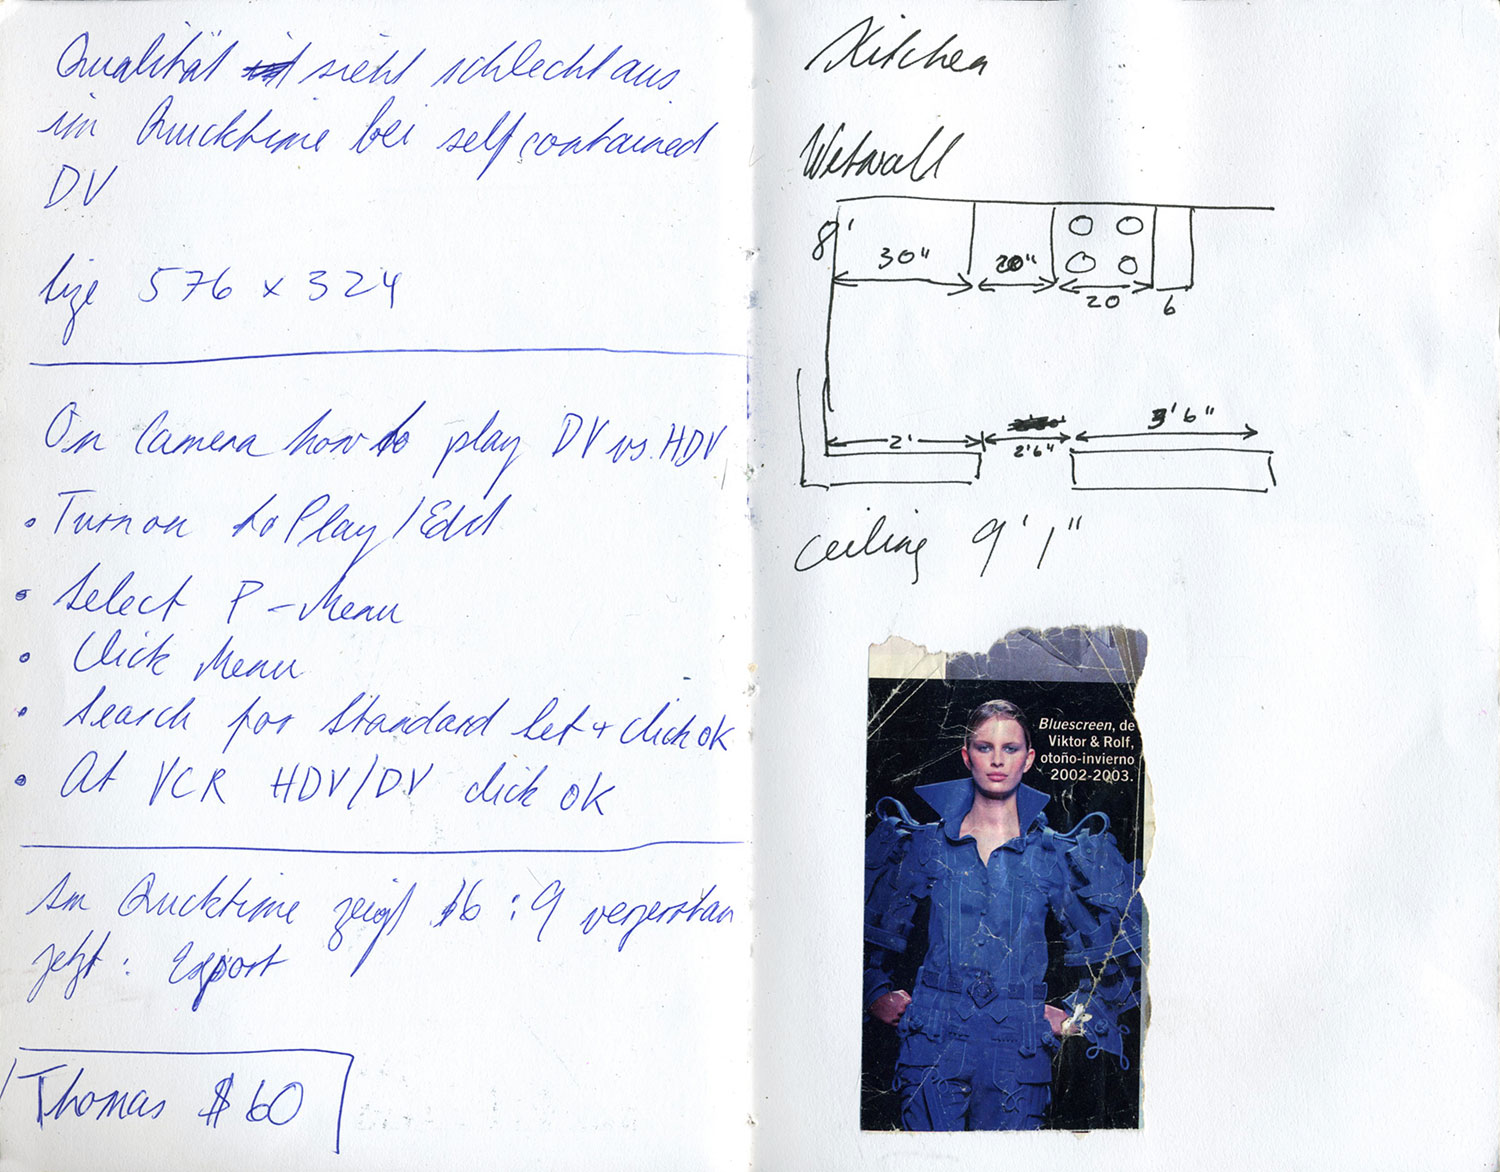 Qualität sieht schlecht aus
im Quicktime bei self contained
DV
Size 576 x 324
On Camera how to play DV vs. HDV
• Turn on to Play/Edit
• Select P-Menu
• Click Menu
• Search for Standard Set + click OK
• At VCR HDV/DV click OK
Im Quicktime zeigt 16:9 verzerrt an
jetzt: Export
Thomas $60
Kitchen
Wetwall
8'
30"
20"
20
6
2'
2'6"
3'6"
Ceiling 9'1"
Bluescreen, de
Viktor & Rolf,
otoño-invierno
2002-2003.